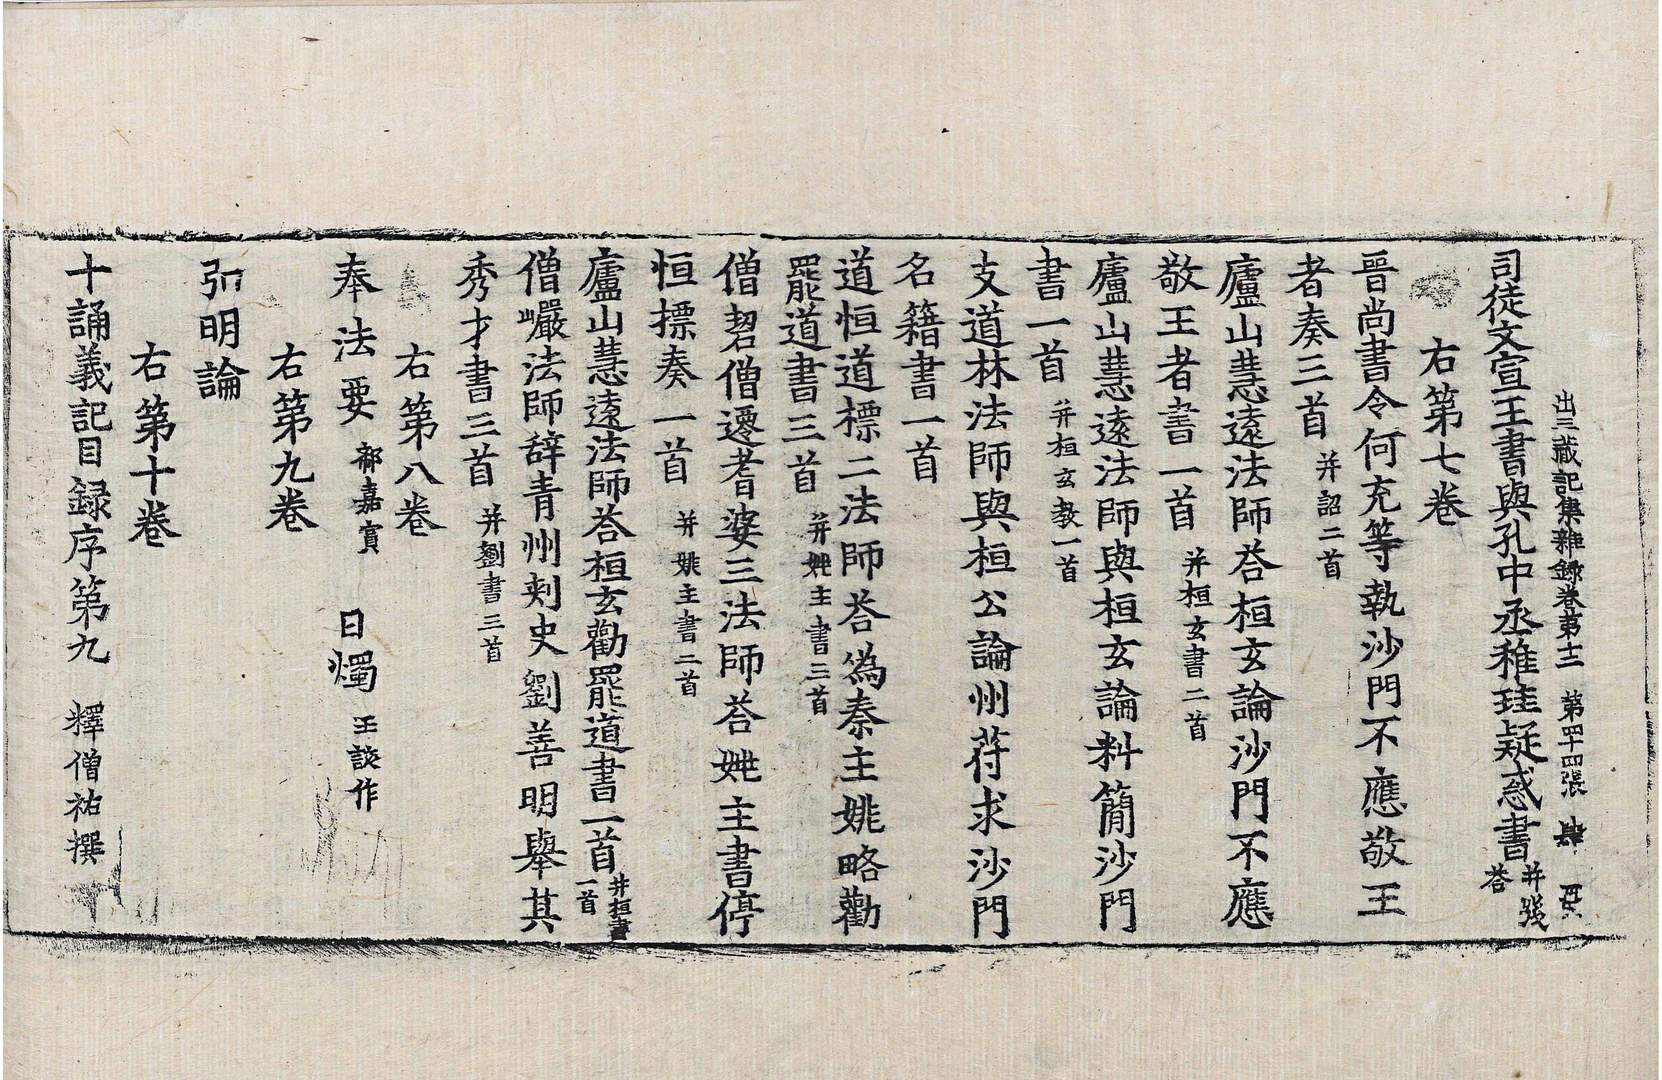 出三藏記集雜錄卷第十二 第四十四張
司徒文宣王書與孔中丞稚珪疑惑書 并牋荅
右第七卷
晉尚書令何充等執沙門不應敬王
者奏三首 并詔二首
廬山慧遠法師荅桓玄論沙門不應
敬王者書一首 并桓玄書二首
廬山慧遠法師與桓玄論料簡沙門
書一首 并桓玄教一首
支道林法師與桓公論州符求沙門
名籍書一首
道恒道標二法師荅偽秦主姚略勸
罷道書三首 并姚主書三首
僧䂮僧遷耆婆三法師荅姚主書停
恒標奏一首 并姚主書二首
廬山慧遠法師荅桓玄勸罷道書一首 并桓書一首
僧巖法師辞青州刾史劉善明舉其
秀才書三首 并劉書三首
右第八卷
奉法要 郗嘉賓 日燭 王該作
右第九卷
弘明論
右第十卷
十誦義記目録序第九 釋僧祐撰